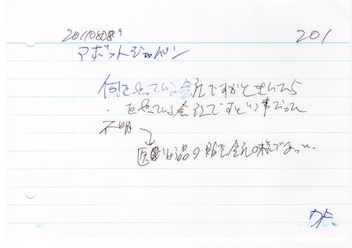 20110808 201
アボットジャパン
何をやっている会社ですかときいたら
‥をやっている会社ですという事だった
不明
医薬品の販売会社の様であった…